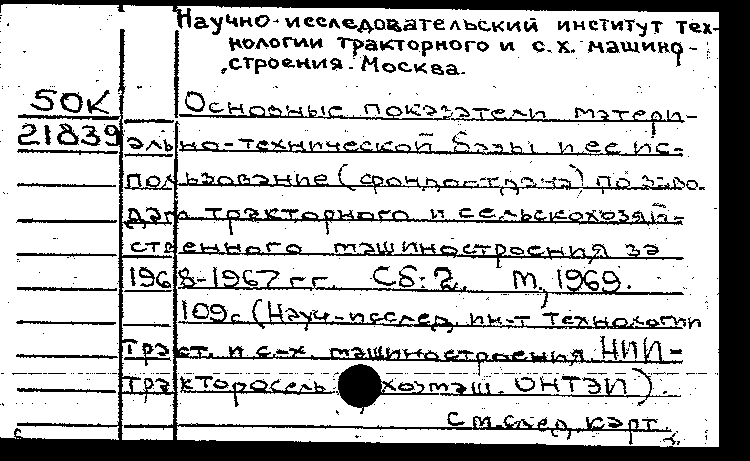 Научно-исследовательский институт тех-
нологии тракторного и с.х. машино-
строения. Москва.
50К
Основные показатели матери-
21839
ально-технической базы и ее ис-
пользование (фондоотдача) по заво-
дам тракторного и сельскохозяй-
ственного машиностроения за
1968-1967 гг. Сб: 2. М., 1969.
109с (Науч-исслед. ин-т технологии
тракт. и с-х. машиностроения. НИИ-
тракторосельхозмаш. ОНТЭИ).
См. след. карт.